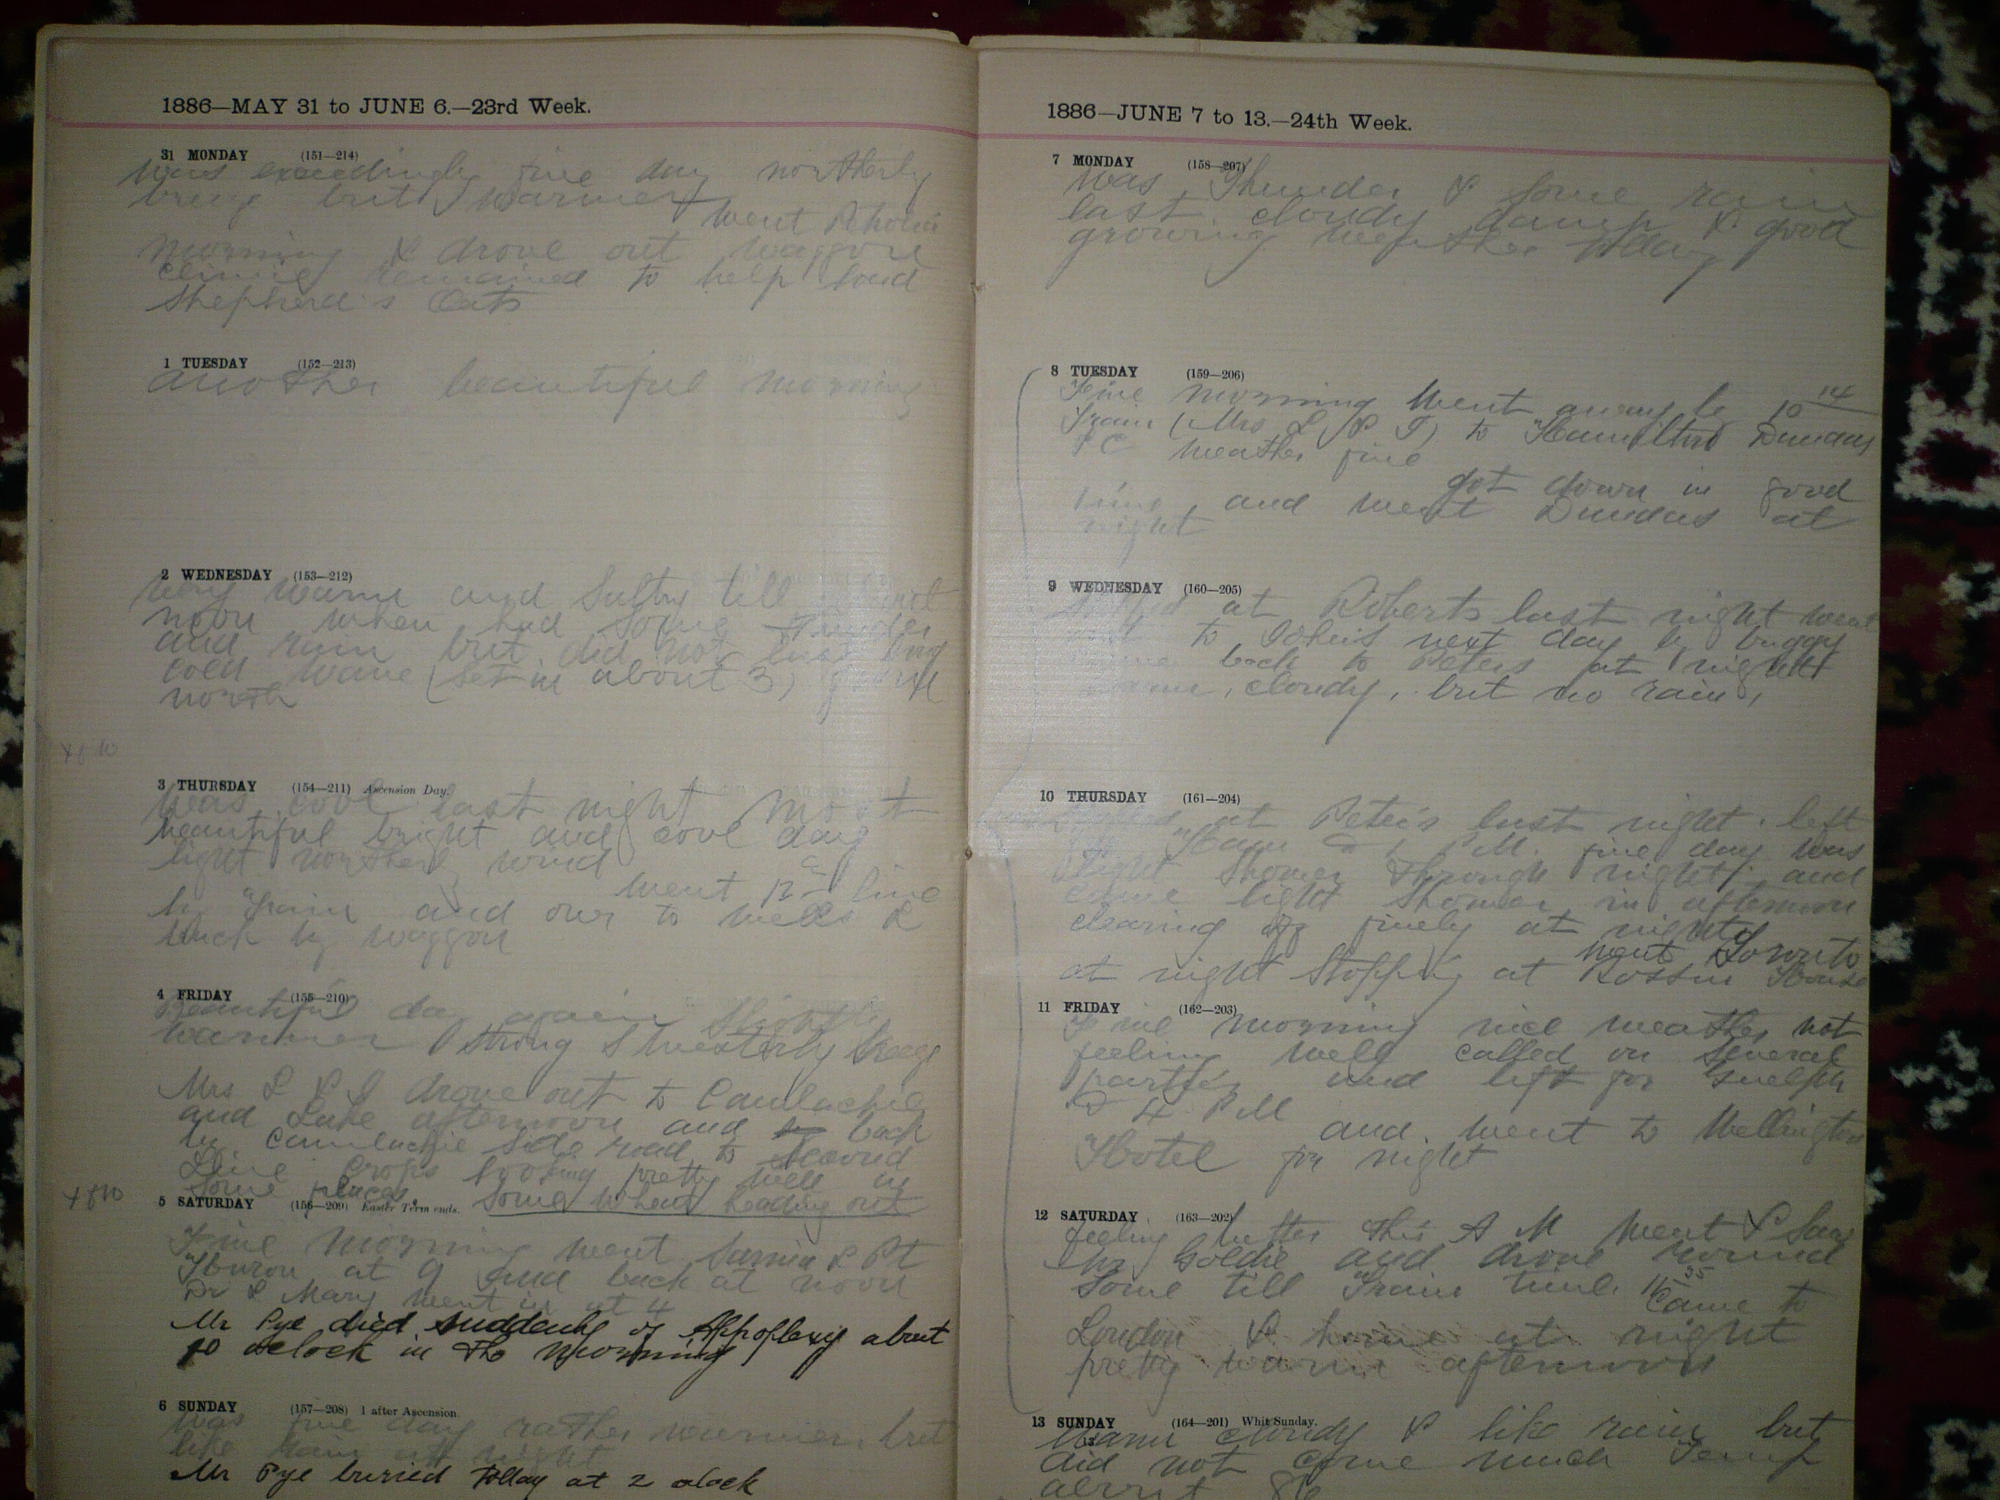 1886—MAY 31 to JUNE 6.—23rd Week.
31 MONDAY (151—214)
was exceedingly fine day northerly
breeze but warmer
went
morning & drove out waggon
remained to help load
Shepherd's Oats
1 TUESDAY (152—213)
another beautiful morning
2 WEDNESDAY (153—212)
very warm and Sultry till
noon when had some
and rain but did not last long
cold wave (set in about 3)
north
3 THURSDAY (154—211) Ascension Day.
Was cool last night Most
beautiful bright and cool day
light northerly wind
went 12 line
by Train and over to wells &
back by waggon
4 FRIDAY (155—210)
Beautiful day again Slightly
warmer strong S Westerly breeze
Mrs L & I drove out to Camlachie
and Lake afternoon and back
by Camlachie side road to Second
Line Crops looking pretty well in
Some places. Some wheat heading out
5 SATURDAY (156—209) Easter Term ends.
Fine Morning went Sarnia & Pt
Huron at 9 and back at noon
Dr & Mary went in at 4
Mr Pye died suddenly of Appoplexy about
10 oclock in the morning
6 SUNDAY (157—208) 1 after Ascension.
was fine day rather warmer but
like rain at night
Mr Pye buried today at 2 oclock
1886—JUNE 7 to 13.—24th Week.
7 MONDAY (158—207)
Was Thunder & some rain
last. cloudy damp & good
growing weather today
8 TUESDAY (159—206)
Fine morning Went away by 10 14
Train (Mrs L & I) to Hamilton Dundas
&C weather fine
got down in good
time, and went Dundas at
night
9 WEDNESDAY (160—205)
at Roberts last night went
to John's next day by buggy
back to Peters at night
warm, cloudy, but no rain,
10 THURSDAY (161—204)
at Peter's last night. left
P.M. fine day was
slight Shower through night and
some light Shower in afternoon
clearing off finely at night
went Toronto
at night Stopping at Rossin House
11 FRIDAY (162—203)
Fine morning nice weather not
feeling well called on several
parties and left for Guelph
4 P M and went to Wellington
Hotel for night
12 SATURDAY (163—202)
feeling better this A M Went & Saw
Mr Goldie and drove around
Some till Train time 11 55
Came to
London & home at night
pretty warm afternoon
13 SUNDAY (164—201) Whit Sunday.
Warm cloudy & like rain but
did not come much Temp
about